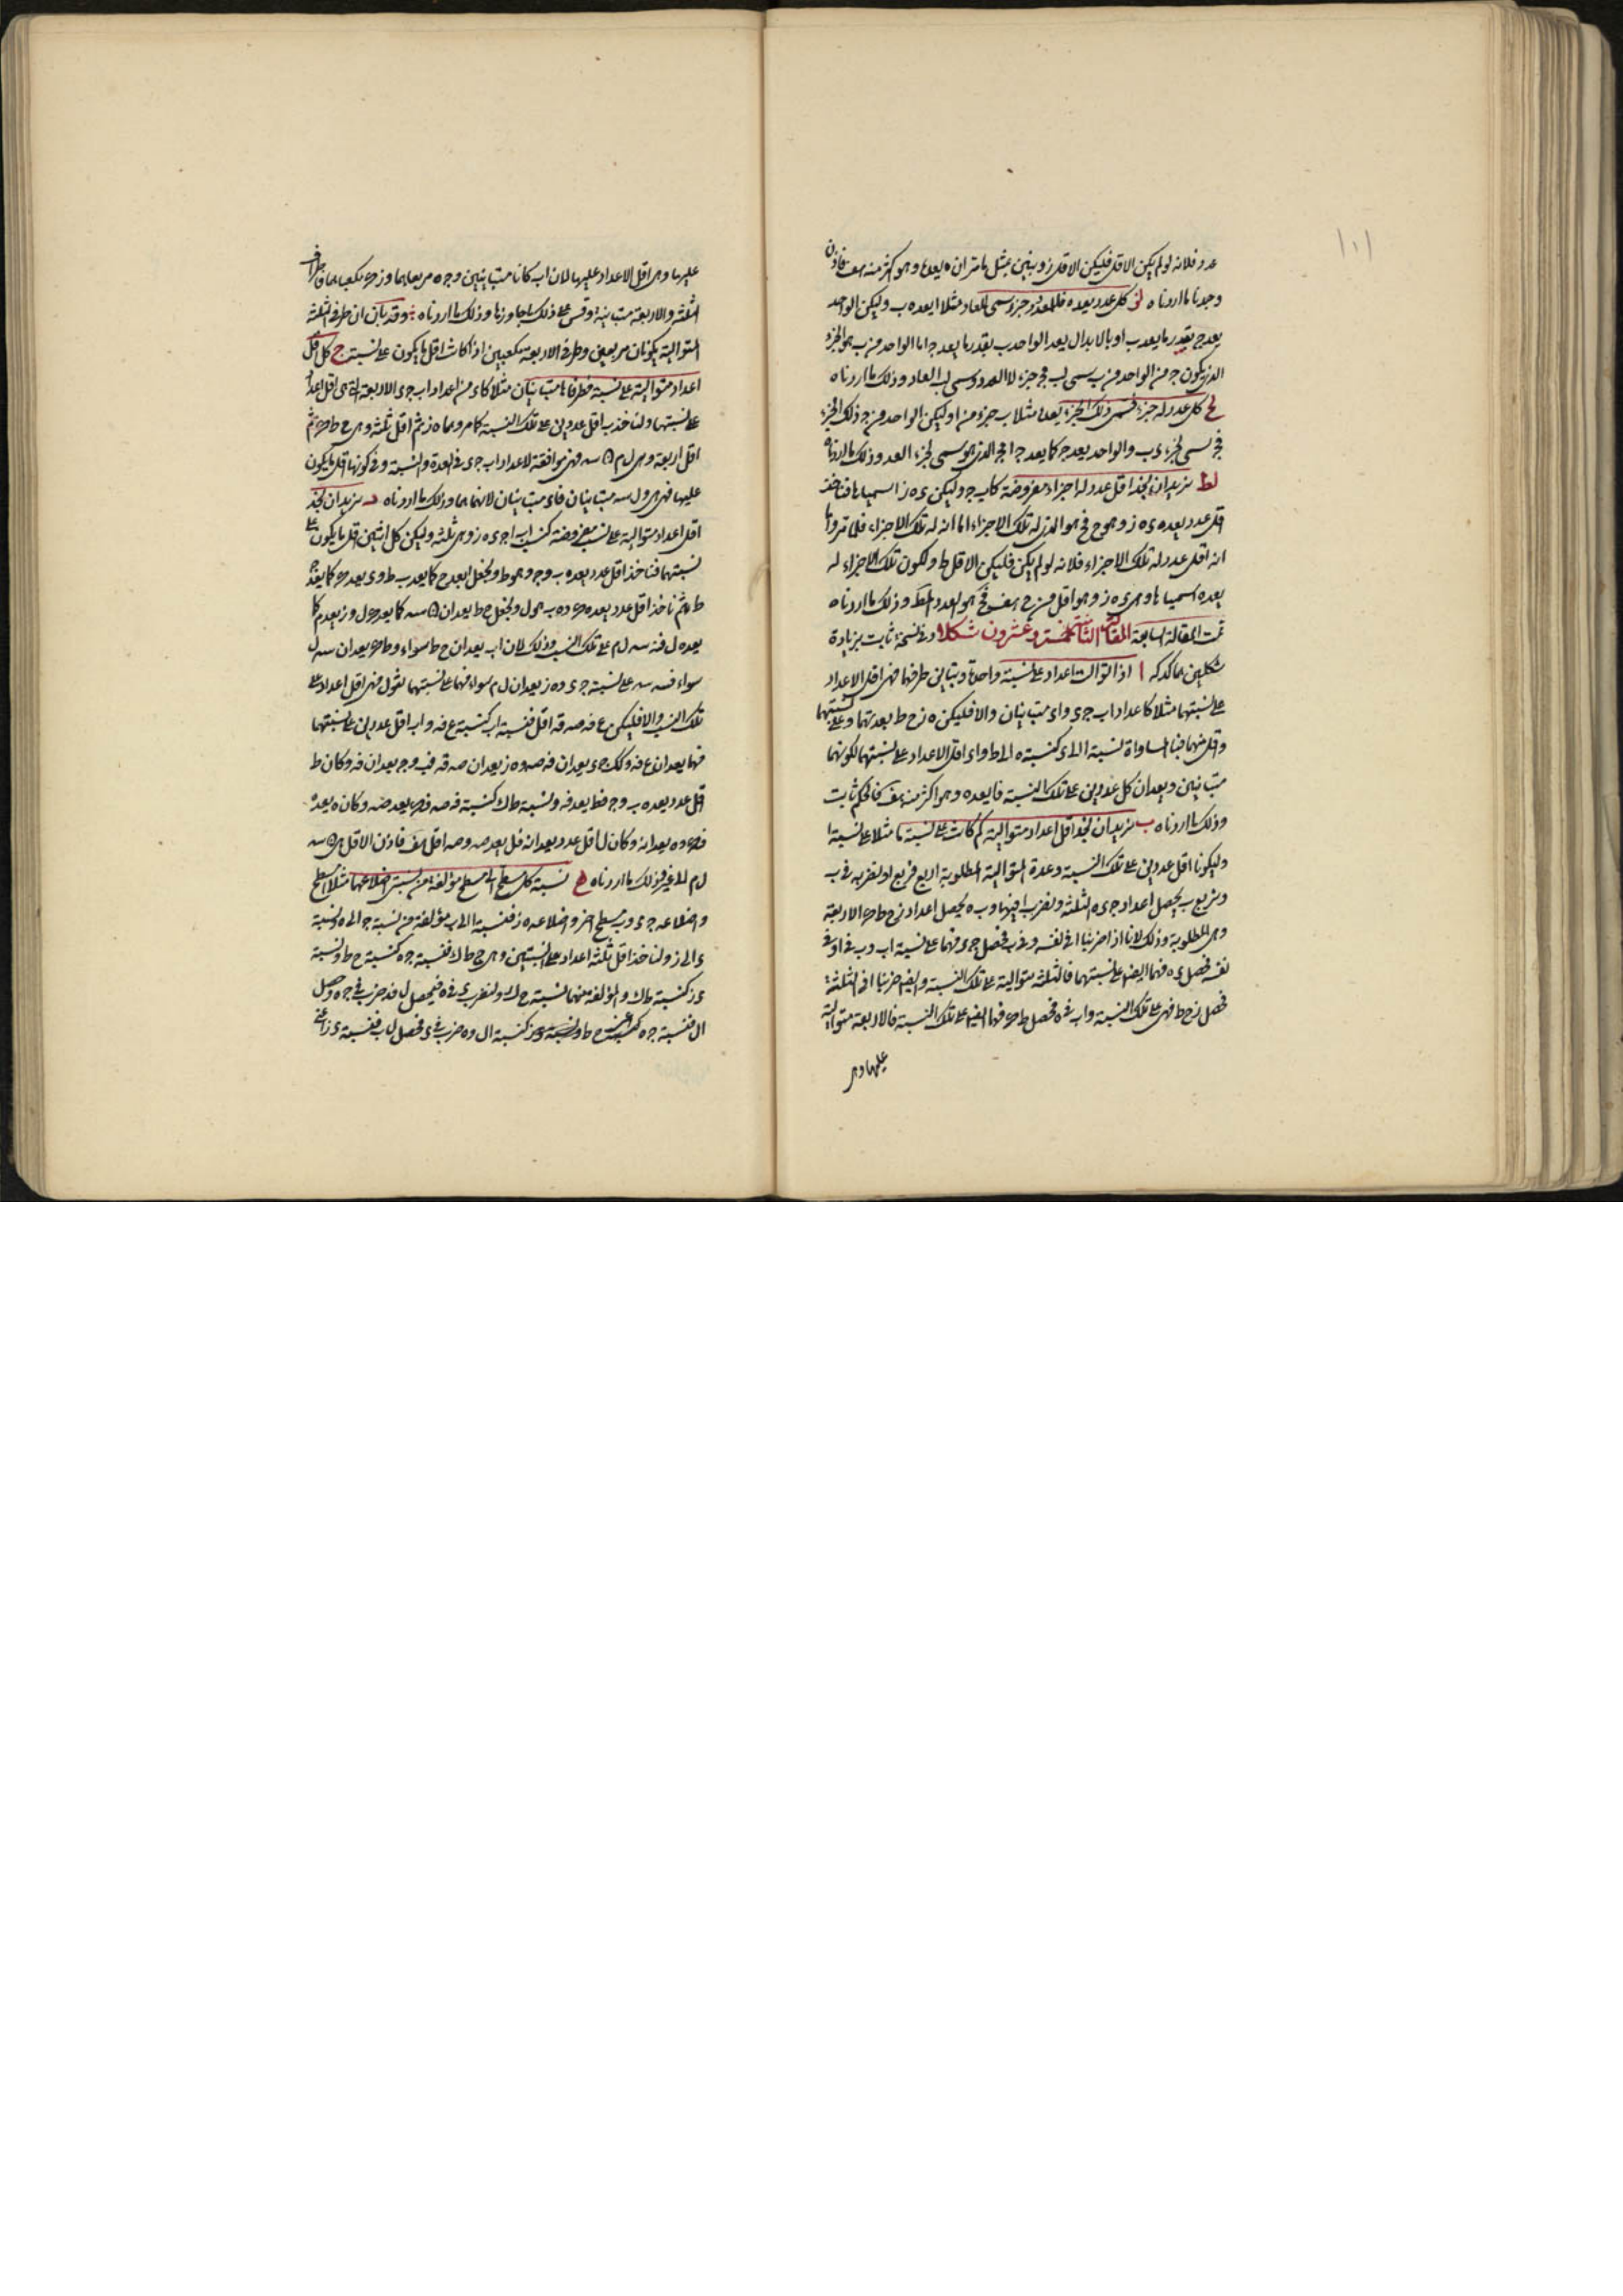 ١٠١
عدد فلانه لو لم يكن الاقل فليكن الاقل ز ونبين بمثل ما مر ان ه يعدها وهو اكثر منه هف فاذن
وجدنا ما اردناه لز كل عدد يعده فللمعدود جزء سمى للعاد مثلا ا يعده ب وليكن الواحد
يعد ج بقدر ما يعد ب ا وبالابدال يعد الواحد ب بقدر ما يعد ج ا ما الواحد من ب هو الجزء
الذي يكون ج من ا لواحد من ب سمى لب فج جزء لا العدد وسمى لب العاد وذلك ما اردناه
لح كل عدد له جزء فسمى ذلك الجزء يعده مثلا ب جزء من ا وليكن الواحد من ج ذلك الجزء
فج سمى لجزء ب والواحد يعد ج كما يعد ب ا فج الذي هو سمى لجزء العدد وذلك ما اردناه
لط نريد ان نجد اقل عدد له اجزاء مفروضة كاب ج وليكن ء ه ز اسمياها فناخذ
اقل عدد يعده ء ه ز وهو ح فح هو الذي له تلك الاجزاء اما انه له تلك الاجزاء فلما مر واما
انه اقل عدد له تلك الاجزاء فلانه لو لم يكن فليكن الاقل ط ولكون تلك الاجزاء له
يعده اسمياها وهى ء ه ز وهو اقل من ح هف فح هو العدد المط وذلك ما اردناه
تمت المقالة السابعة المقالة الثامنة خمسة وعشرون شكلا وفي نسخة ثابت بزيادة
شكلين هما كد كه ا اذا توالت اعداد على نسبة واحدة وتباين طرفاها فهى اقل الاعداد
على نسبتها مثلا كاعداد اب ج ء و ا ء متباينان والا فليكن ه ز ح ط بعدتها وعلى نسبتها
واقل منها فبالمساواة نسبة ا الى ء كنسبة ه الى ط و ا ء اقل الاعداد على نسبتها لكونهما
متباينين ويعدان كل عددين على تلك النسبة فا يعد ه وهو اكثر منه هف فالحكم ثابت
وذلك ما اردناه ب نريد ان نجد اقل اعداد متوالية كم كانت على نسبة ما مثلا على نسبة ا
وليكونا اقل عددين على تلك النسبة وعدة المتوالية المطلوبة اربع فنربع ا ونضربه في ب
ونربع ب يحصل اعداد ج ء ه الثلثة ونضرب ا فيها وب ه يحصل اعداد ز ح ط ى الاربعة
وهى المطلوبة وذلك لانا اذا ضربنا ا في نفسه وفي ب فحصل ج ء فهما على نسبة اب وب في ا وفي
نفسه فحصل ء ه فهما ايضا على نسبتهما فالثلثة متوالية على تلك النسبة وايضا ضربنا ا في الثلثة
فحصل ز ح ط فهى على تلك النسبة واب في ه فحصل ط ى فهما ايضا على تلك النسبة فالاربعة متوالية
عليها وهى
عليها وهى اقل الاعداد عليها لان اب كانا متباينين وج ه مربعاهما وز ى مكعباهما فطرفا
الثلثة والاربعة متباينة وقس على ذلك ما جاوزها وذلك ما اردناه وقد بان ان طرفي الثلثة
المتوالية يكونان مربعين وطرفي الاربعة مكعبين اذا كانت اقل ما يكون على نسبتها ج كل اقل
اعداد متوالية على نسبة فطرفاها متباينان مثلا كا ء من اعداد اب ج ء الاربعة التي هى اقل اعداد
على نسبتها ولناخذ اقل عددين على تلك النسبة كما مر وهما ه ز ثم اقل ثلثة وهى ح ط ى ثم
اقل اربعة وهى ل م ن سه فهى موافقة لاعداد اب ج ء في العدة والنسبة وفي كونها اقل ما يكون
عليها فهى هى ول سه متباينان فا ء متباينان لانهما هما وذلك ما اردناه د نريد ان نجد
اقل اعداد متوالية على نسب مفروضة كنسب اب ج ء ه ز وهى ثلثة وليكن كل اثنين اقل ما يكون على
نسبتهما فناخذ اقل عدد يعده ب وج وهو ط ونجعل ا يعد ح كما يعد ب ط وء يعد ى كما يعد ج
ط ثم ناخذ اقل عدد يعده ى وه وهو ل ونجعل ح ط يعدان ن سه كما يعد ى ل وز يعد م كما
يعد ه ل فن سه ل م على تلك النسب وذلك لان اب يعدان ح ط سواء وط ى يعدان سه ل
سواء فن سه على نسبة ج ء وه ز يعدان ل م سواء فهما على نسبتهما نقول فهى اقل اعداد على
تلك النسب والا فليكن ع فه صه قه اقل فنسبة اب كنسبة ع فه واب اقل عددين على نسبتهما
فهما يعدان ع فه وكك ج ء يعدان فه صه وه ز يعدان صه قه فب وج يعدان فه وكان ط
اقل عدد يعده ب وج فط يعد فه ونسبة ط ى كنسبة فه صه فى يعد صه وكان ه يعده
فى وه يعدانه وكان ل اقل عدد يعدانه فل يعد صه وصه اقل هف فاذن الاقل هى ن سه
ل م لا غير وذلك ما اردناه ه نسبة كل مسطح الى مسطح مؤلفة من نسبتى اضلاعهما مثلا ا مسطح
واضلاعه ج ء وب مسطح اخر واضلاعه ه ز فنسبة ا الى ب مؤلفة من نسبة ج الى ه ونسبة
ء الى ز ولناخذ اقل ثلثة اعداد على النسبتين وهى ح ط ك فنسبة ج ه كنسبة ح ط ونسبة
ء ز كنسبة ط ك والمؤلفة منهما نسبة ح ك ولنضرب ء في ه فيحصل ل فء ضرب في ج ه وحصل
ا ل فنسبة ج ه كنسبة ح ط كنسبة ا ل وه ضرب في ء ز فحصل ل ب فنسبة ء ز اعنى